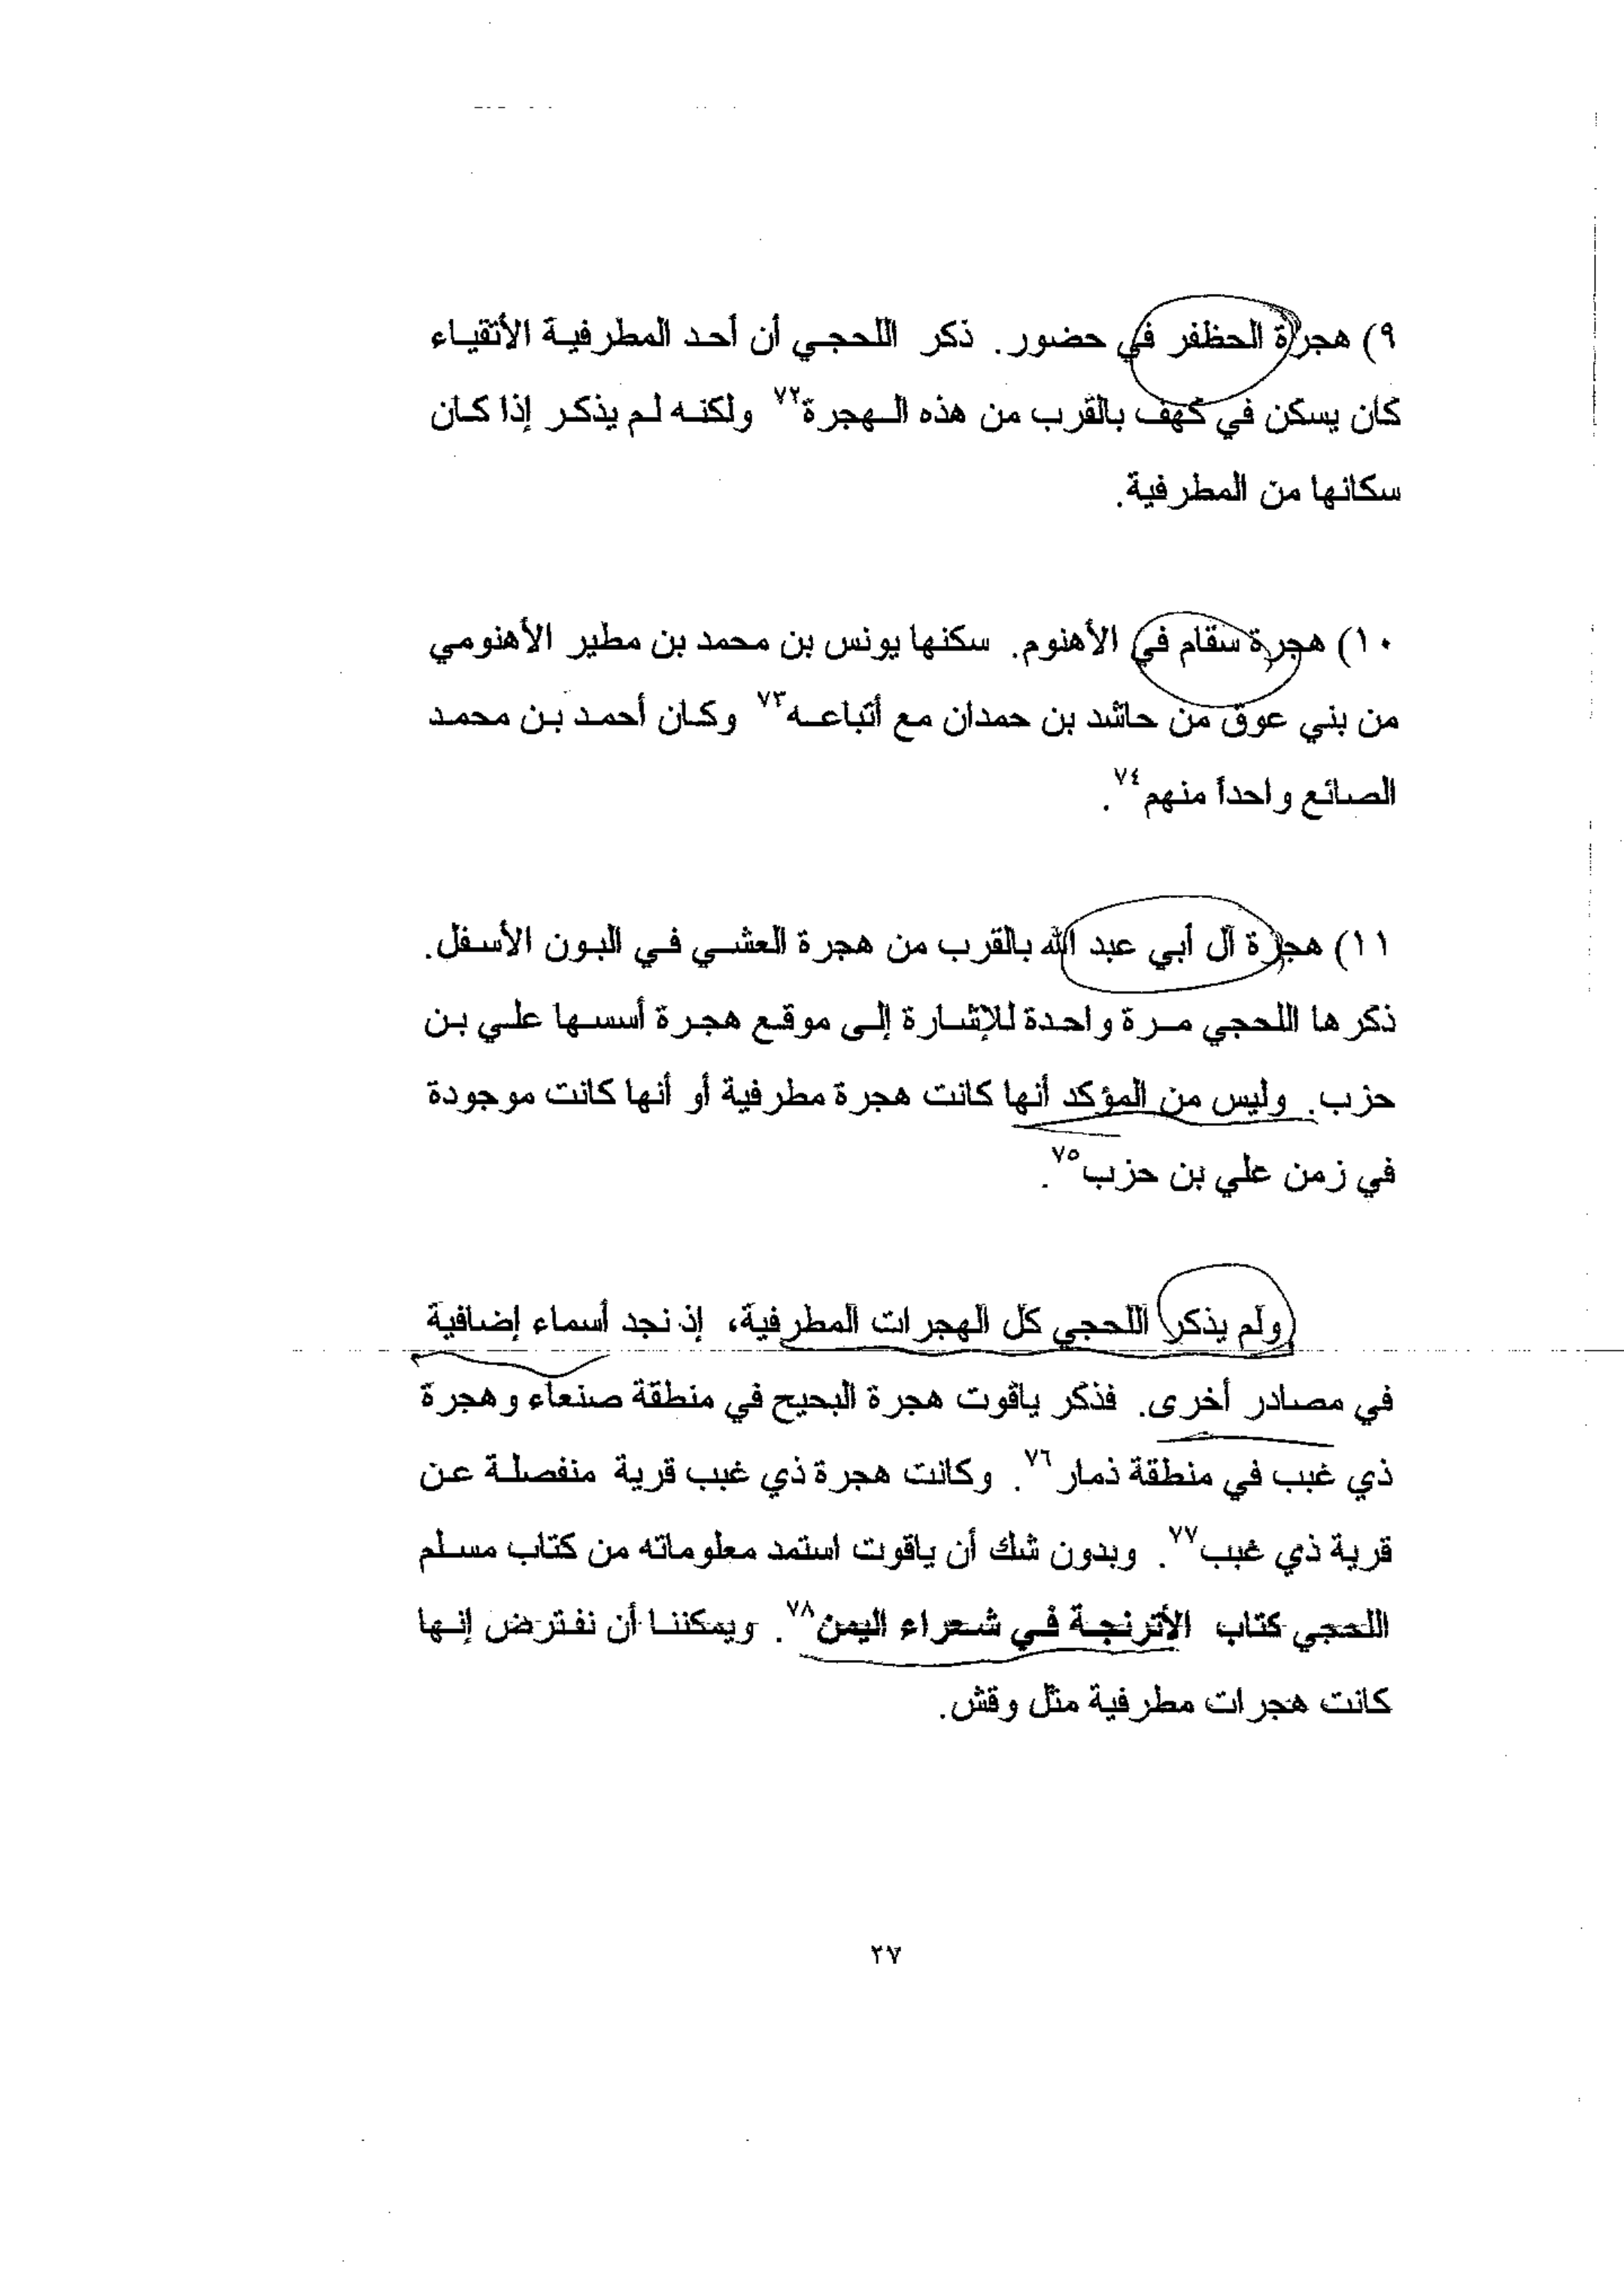 ٩) هجرة الحظفر في حضور. ذكر اللحجي أن أحد المطرفية الأتقياء
كان يسكن في كهف بالقرب من هذه الهجرة٧٢ ولكنه لم يذكر إذا كان
سكانها من المطرفية.
١٠) هجرة سقام في الأهنوم. سكنها يونس بن محمد بن مطير الأهنومي
من بني عوق من حاشد بن حمدان مع أتباعه٧٣ وكان أحمد بن محمد
الصائع واحداً منهم٧٤.
١١) هجرة آل أبي عبد الله بالقرب من هجرة العشي في البون الأسفل.
ذكرها اللحجي مرة واحدة للإشارة إلى موقع هجرة أسسها علي بن
حزب. وليس من المؤكد أنها كانت هجرة مطرفية أو أنها كانت موجودة
في زمن علي بن حزب٧٥.
ولم يذكر اللحجي كل الهجرات المطرفية، إذ نجد أسماء إضافية
في مصادر أخرى. فذكر ياقوت هجرة البحيح في منطقة صنعاء وهجرة
ذي غبب في منطقة ذمار٧٦. وكانت هجرة ذي غبب قرية منفصلة عن
قرية ذي غبب٧٧. وبدون شك أن ياقوت استمد معلوماته من كتاب مسلم
اللحجي كتاب الأترنجة في شعراء اليمن٧٨. ويمكننا أن نفترض إنها
كانت هجرات مطرفية مثل وقش.
٢٧